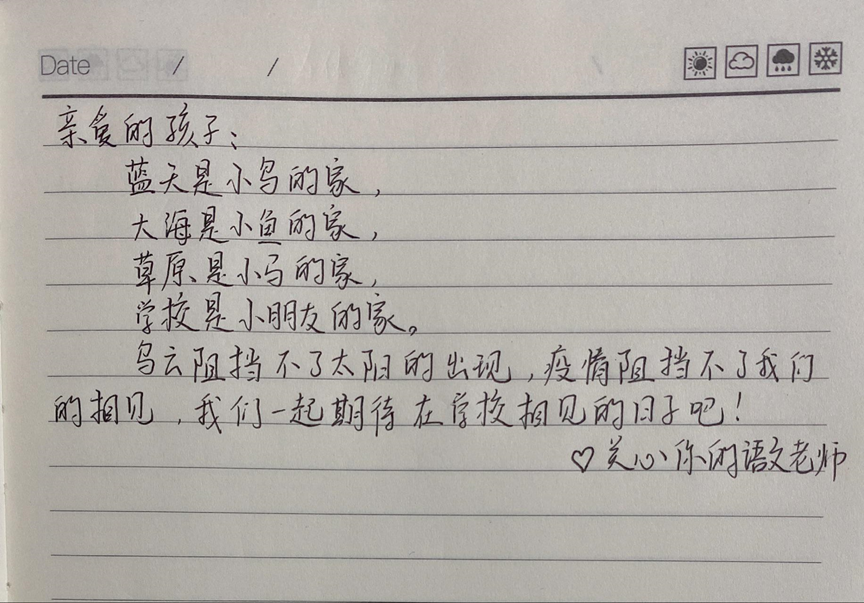 Date / /
亲爱的孩子：
蓝天是小鸟的家，
大海是小鱼的家，
草原是小马的家，
学校是小朋友的家。
乌云阻挡不了太阳的出现，疫情阻挡不了我们
的相见，我们一起期待在学校相见的日子吧！
♡关心你的语文老师